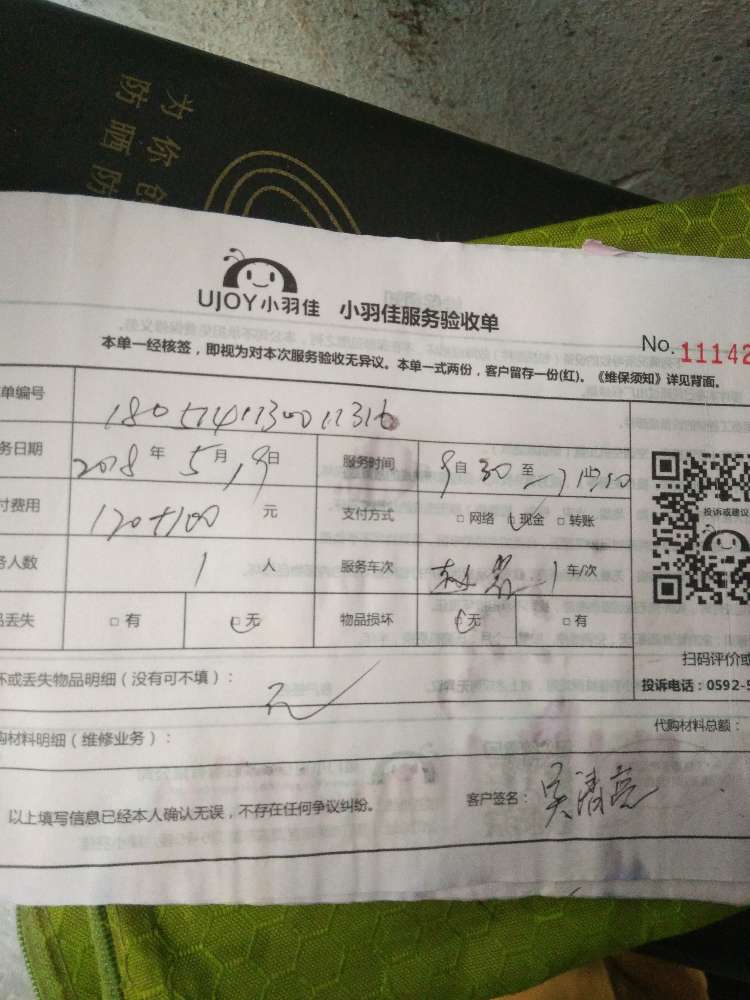 为你创
防晒防
UJOY小羽佳 小羽佳服务验收单
No. 11142
本单一经核签，即视为对本次服务验收无异议。本单一式两份，客户留存一份(红)。《维保须知》详见背面。
单编号
务日期 2018年5月19日 服务时间 9自30至
付费用 120+100 元 支付方式 □网络 □现金 □转账
务人数 1 人 服务车次 1 车/次
品丢失 □有 □无 物品损坏 □无 □有
投诉或建议
扫码评价或
投诉电话：0592-5
坏或丢失物品明细（没有可不填）： 无
代购材料总额：
购材料明细（维修业务）：
以上填写信息已经本人确认无误，不存在任何争议纠纷。 客户签名：吴清亮